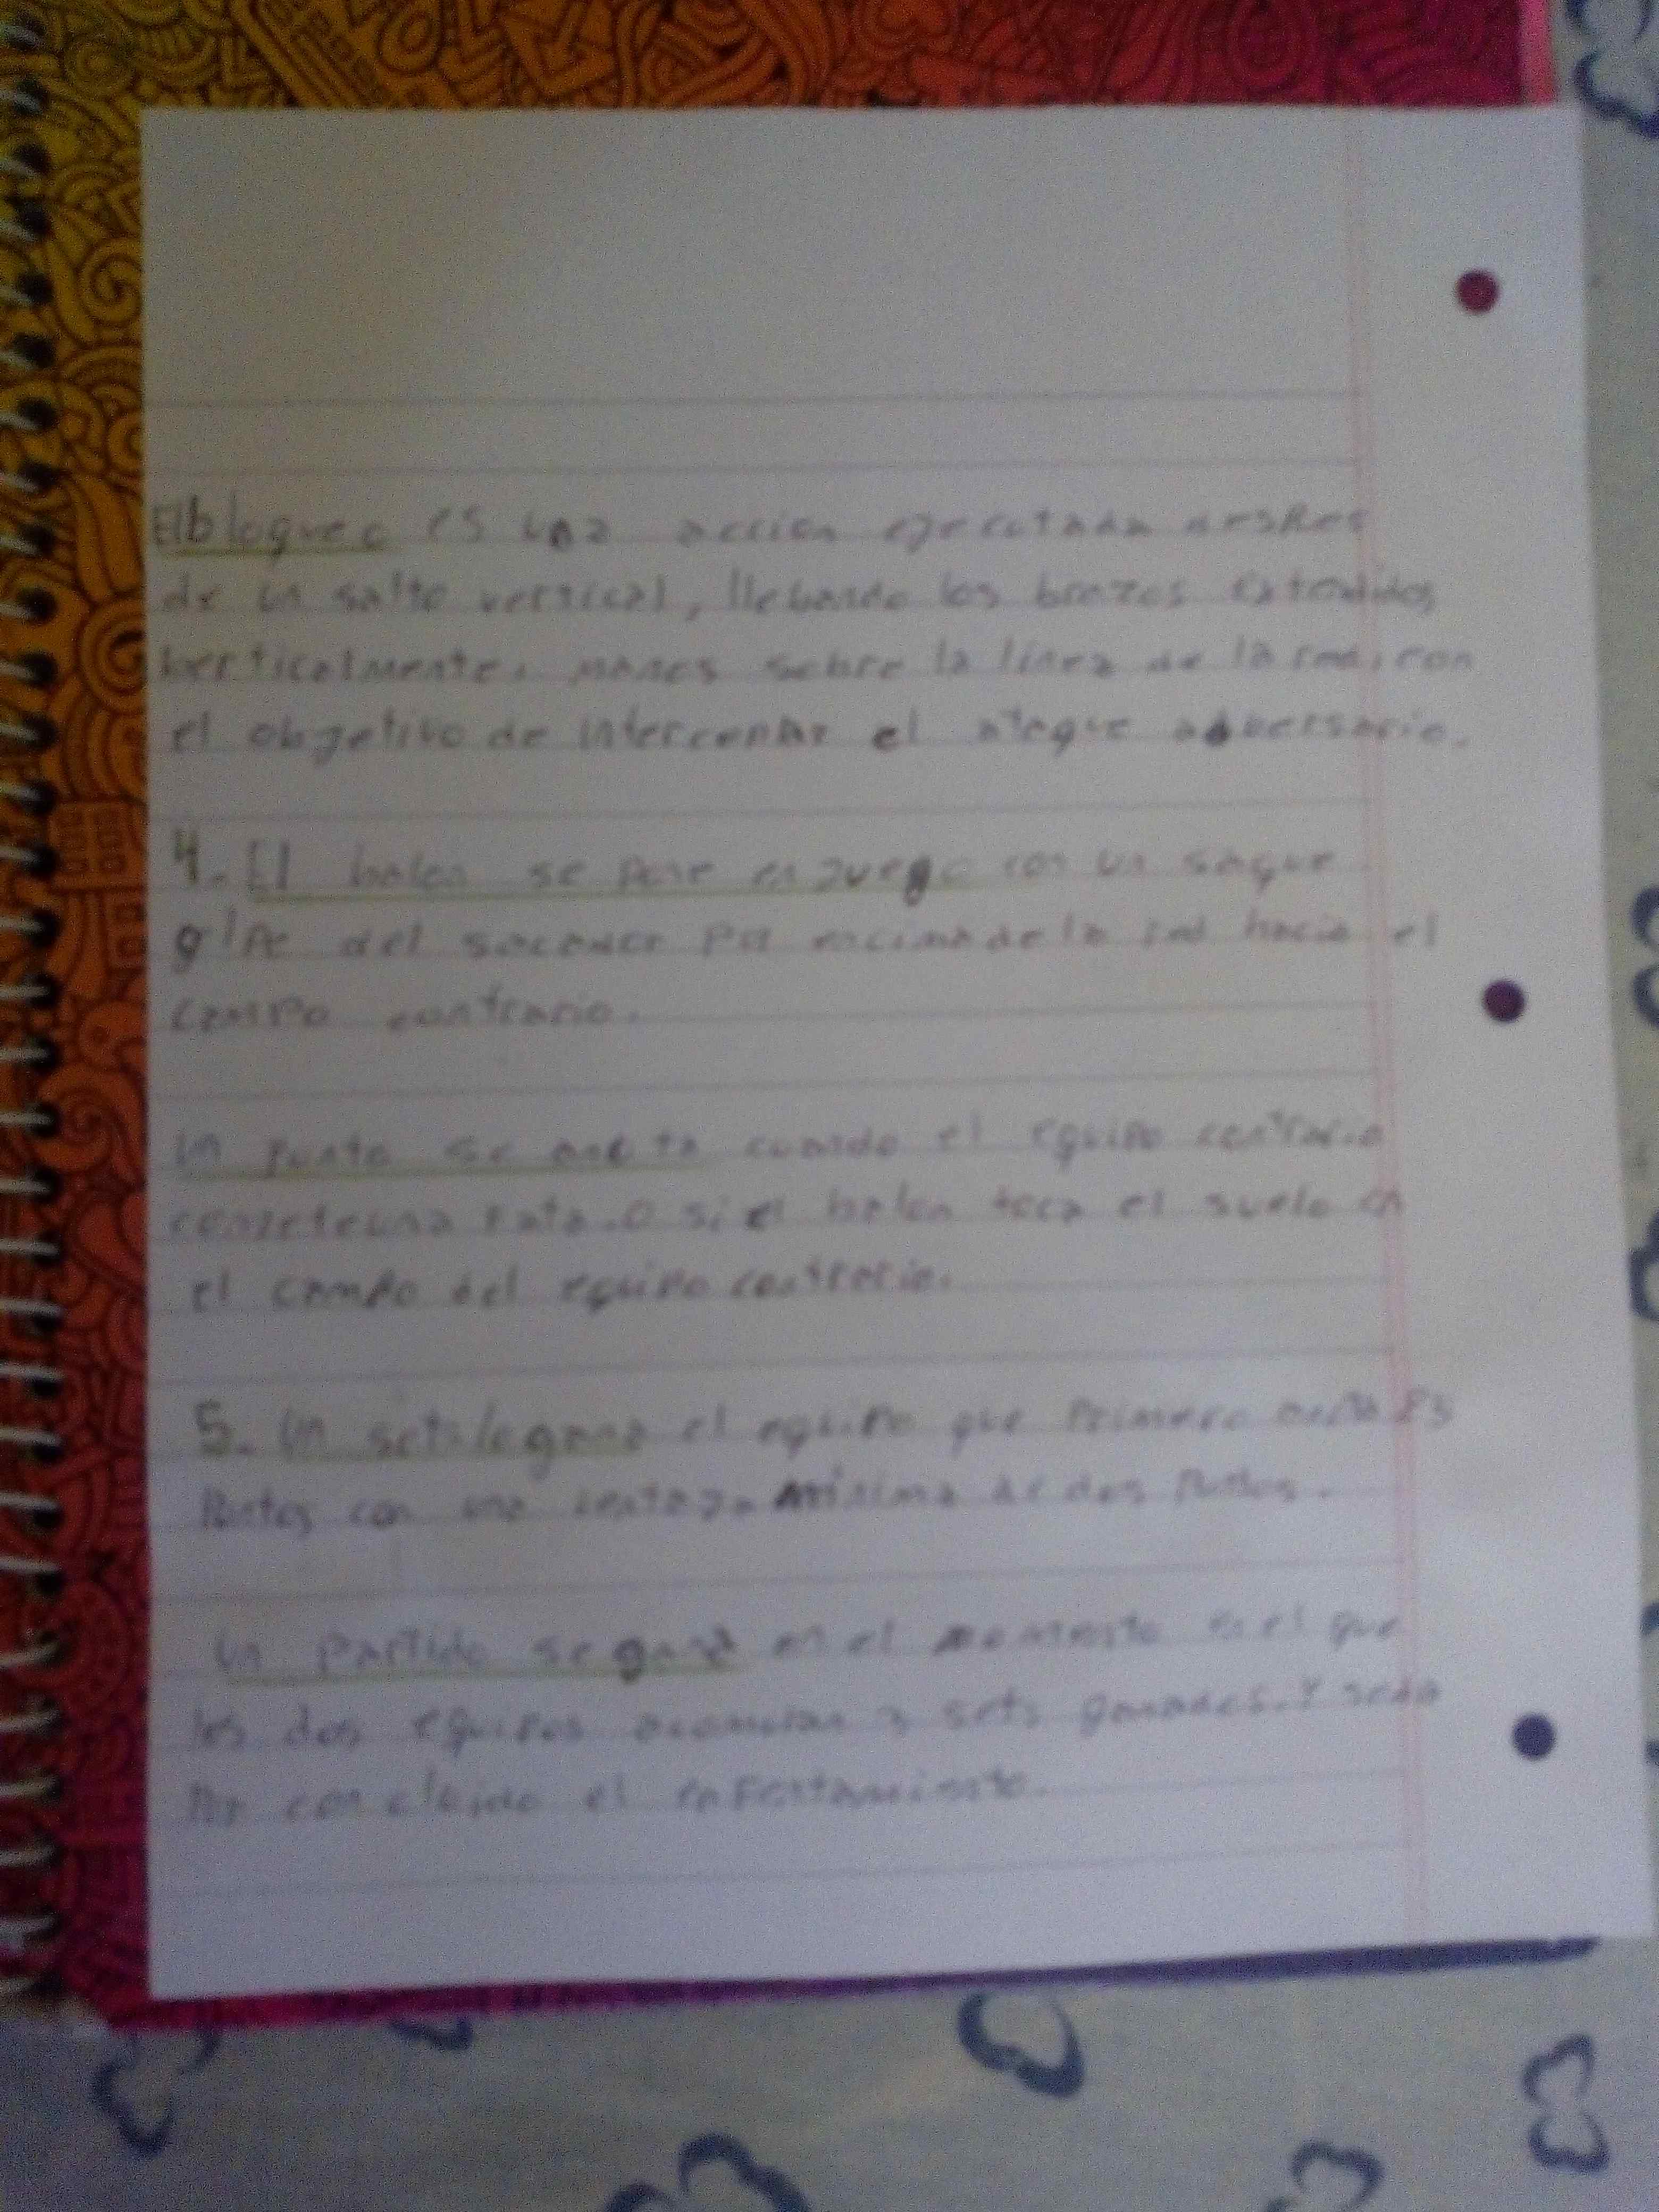 El bloqueo es una accion ejecutada despues
de un salto vertical, llebando los brazos extendidos
berticalmente, manos sobre la linea de la red, con
el obgetibo de interceptar el ataque adversario.
4. El balon se pone en juego con un saque
golpe del sacador por encima de la red hacia el
campo contrario.
un punto se anota cuando el equipo contrario
comete una falta. O si el balon toca el suelo en
el campo del equipo contrario.
5. un set lo gana el equipo que primero anota 25
Puntos con una ventaja minima de dos Puntos.
un partido se gana en el momento en el que
los dos equipos acomulan 3 sets ganados. Y se da
Por concluido el enfrentamiento.